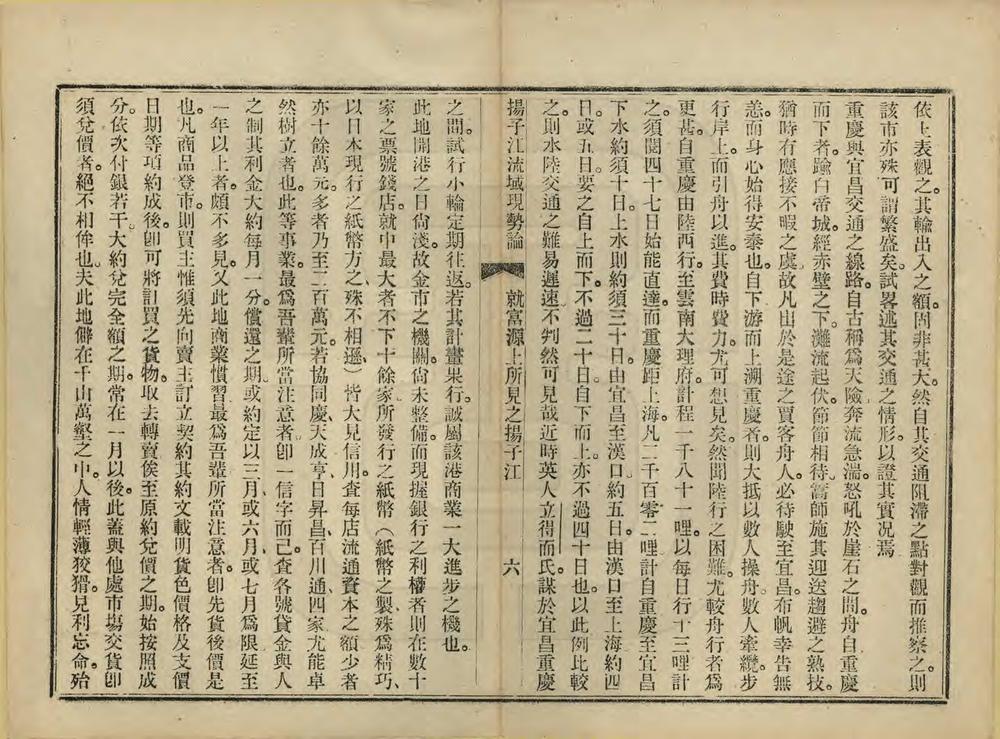 依上表觀之。其輸出入之額。固非甚大。然自其交通阻滯之點對觀而推察之。則
該市亦殊可謂繁盛矣。試畧述其交通之情形。以證其實況焉。
重慶與宜昌交通之線路。自古稱爲天險。奔流急湍。怒吼於崖石之間。舟自重慶
而下者。踰白帝城。經赤壁之下。灘流起伏。節節相待。篙師施其迎送趨避之熟技。
猶時有應接不暇之虞。故凡出於是途之賈客舟人。必待駛至宜昌。布帆幸告無
恙。而身心始得安泰也。自下游而上溯重慶者。則大抵以數人操舟。數人牽纜。步
行岸上。而引舟以進。其費時費力。尤可想見矣。然聞陸行之困難。尤較舟行者爲
更甚。自重慶由陸西行。至雲南大理府。計程一千八十一哩。以每日行十三哩計
之。須閱四十七日始能直達。而重慶距上海。凡二千百零二哩。計自重慶至宜昌
下水約須十日。上水則約須三十日。由宜昌至漢口。約五日。由漢口至上海約四
日。或五日。要之自上而下。不過二十日。自下而上。亦不過四十日也。以此例比較
之。則水陸交通之難易遲速。不判然可見哉。近時英人立得而氏。謀於宜昌重慶
揚子江流域現勢論　就富源上所見之揚子江　六
之間。試行小輪定期往返。若其計畫果行。誠屬該港商業一大進步之機也。
此地開港之日尙淺。故金市之機關尙未整備。而現握銀行之利權者。則在數十
家之票號錢店。就中最大者不下十餘家。所發行之紙幣（紙幣之製、殊爲精巧、
以日本現行之紙幣方之、殊不相遜、）皆大見信用。査每店流通資本之額。少者
亦十餘萬元。多者乃至二百萬元。若協同慶、天成亨、日昇昌、百川通、四家尤能卓
然樹立者也。此等事業。最爲吾輩所當注意者。卽一信字而已。査各號貸金與人
之制。其利金大約每月一分。償還之期。或約定以三月、或六月、或七月爲限。延至
一年以上者。頗不多見。又此地商業慣習。最爲吾輩所當注意者。卽先貨後價是
也。凡商品登市。則買主惟須先向賣主訂立契約。其約文載明貨色價格及支價
日期等項。約成後。卽可將訂買之貨物。取去轉賣。俟至原約兌價之期。始按照成
分。依次付銀若干。大約兌完全額之期。常在一月以後。此蓋與他處市塲交貨卽
須兌價者。絕不相侔也。夫此地僻在千山萬壑之中。人情輕薄狡猾。見利忘命。殆